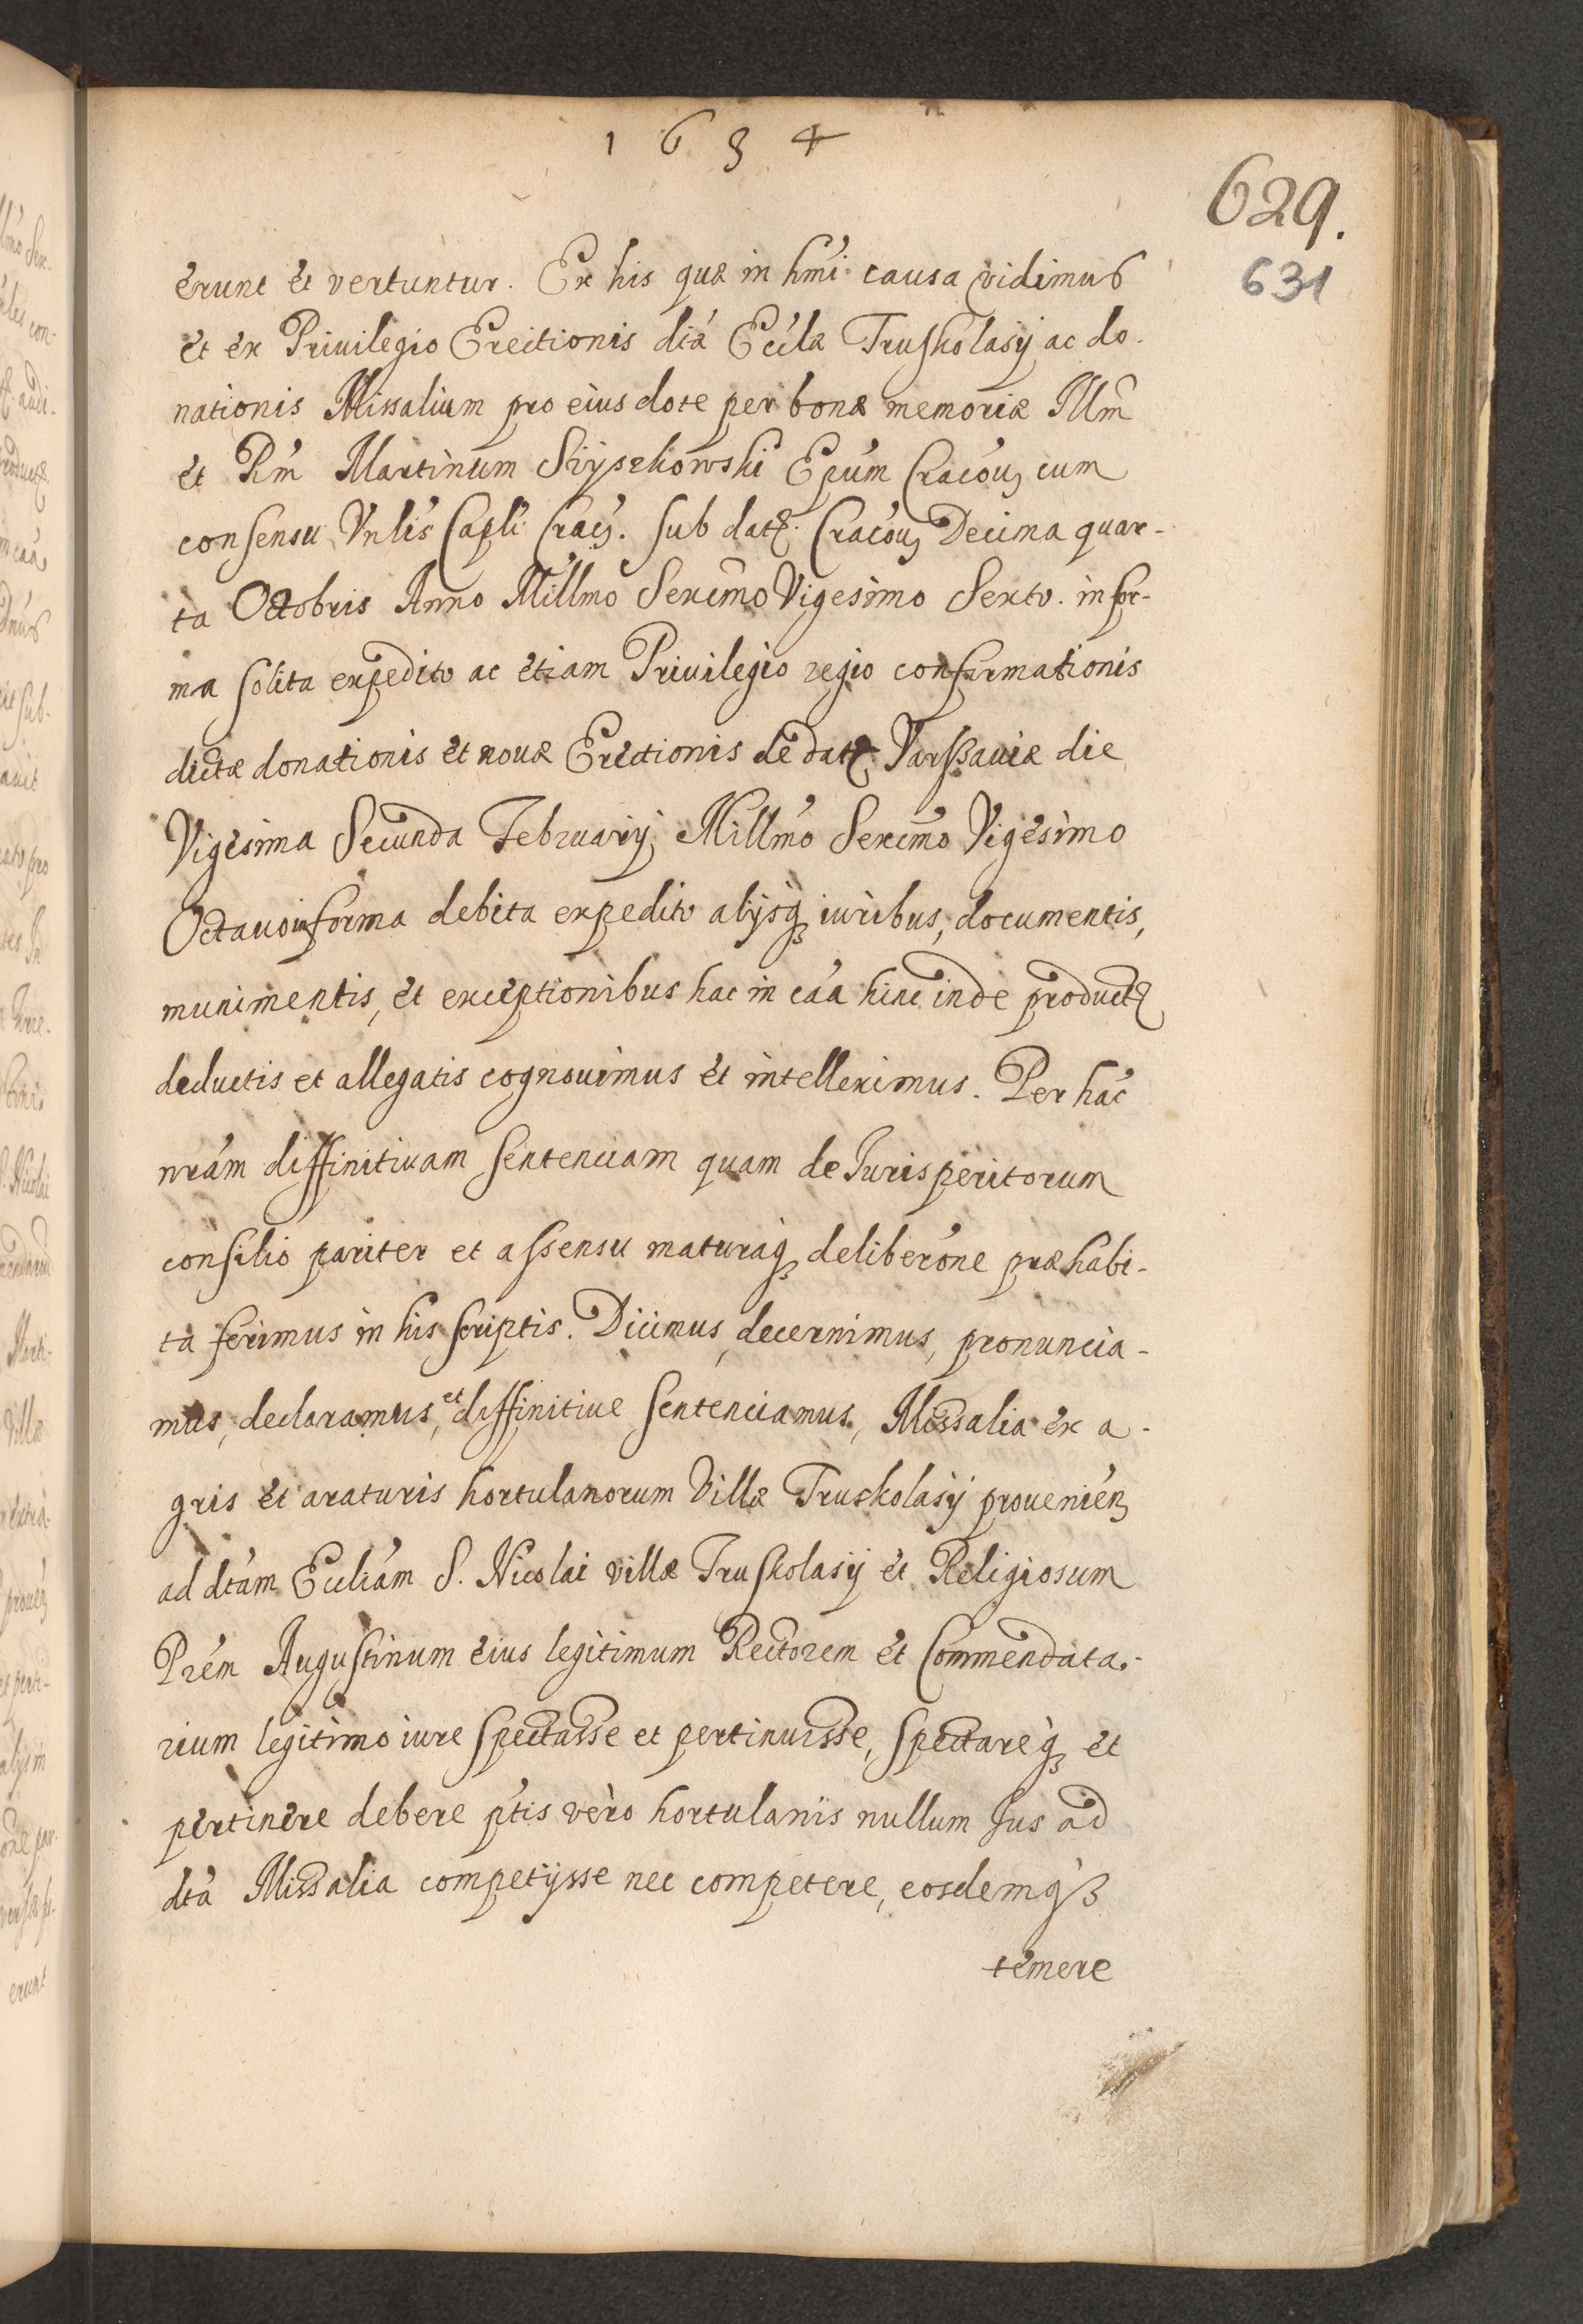 1634
629.
631
erunt et vertuntur. Ex his quæ in hmi: causa vidimus
et ex Priuilegio Erectionis dtæ Ecclæ Truskolasÿ ac do-
nationis Missalium pro eius dote per bonæ memoriæ Illm̃
et Rm̃ Martinum Szÿszkowski Epum Cracou, cum
consensu Vnlis Capli Crac. sub datt. Cracou, Decima quar-
ta Octobris Anno Millmo Sexcmo Vigesimo Sexto. in for-
ma solita expedito ac etiam Priuilegio regio confirmationis
dictæ donationis et nouæ Erectionis de datt. Varssauiæ die
Vigesima Secunda Februarÿ Millmo Sexcmo Vigesimo
Octauo in forma debita expedito alÿsq, iuribus, documentis,
munimentis, et exceptionibus hac in caa hinc inde product
deductis et allegatis cognouimus et intelleximus. Per hac
nram diffinitiuam sentenciam quam de Jurisperitorum
consilio pariter et assensu maturaq, deliberone præhabi-
ta ferimus in his scriptis. Dicimus, decernimus, pronuncia-
mus, declaramus, et diffinitiue sentenciamus, Missalia ex a-
gris et araturis hortulanorum Villæ Truskolasÿ prouenien,
ad dtam Eccliam S. Nicolai villæ Truskolasÿ et Religiosum
Prem Augustinum eius legitimum Rectorem et Commendata-
rium legitimo iure spectasse et pertinuisse, spectareq, et
pertinere debere ptis vero hortulanis nullum Jus ad
dta Missalia competÿsse nec competere, eosdemqȝ
temere